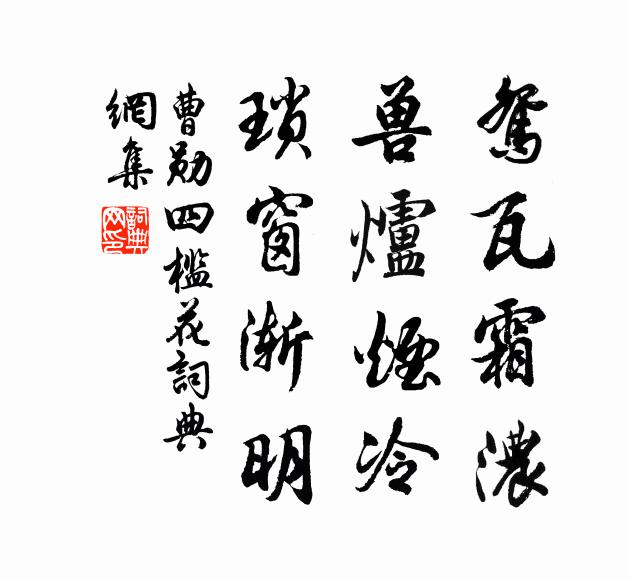 鸳瓦霜濃
兽爐煙冷
瑣窗渐明
曹勋四槛花詞典
網集
詞典
网印